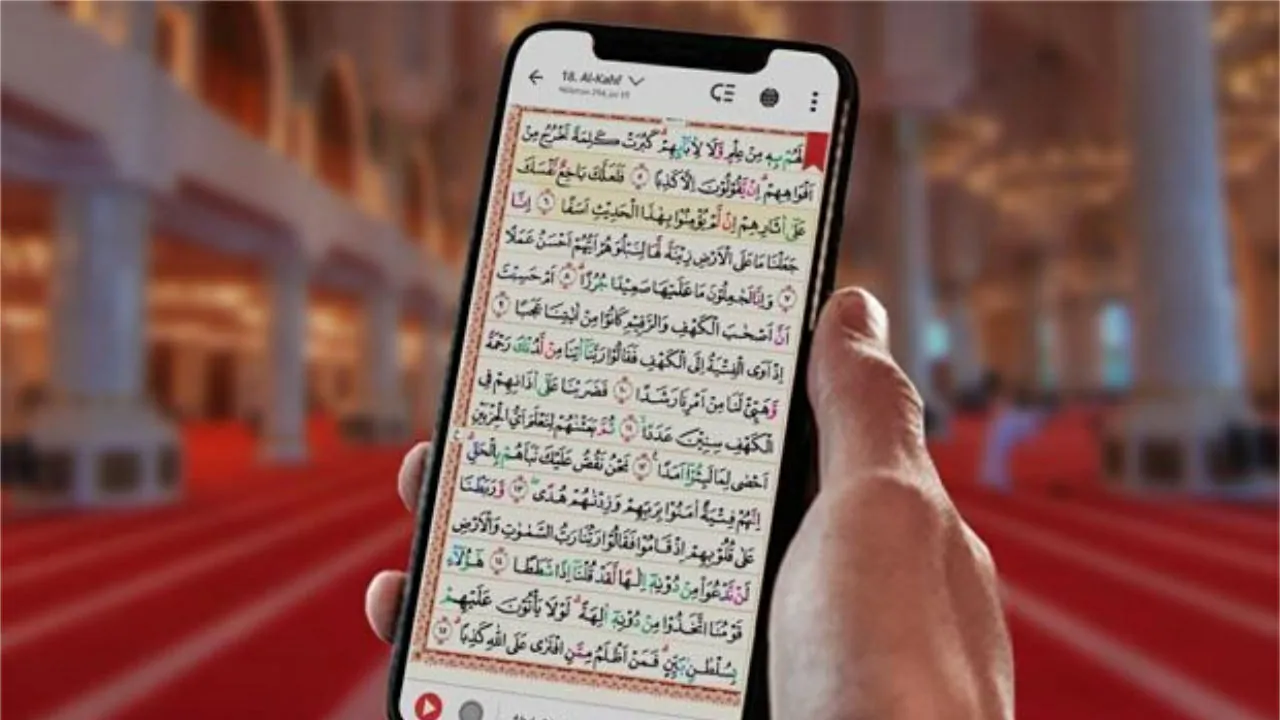 18. Al-Kahf
Halaman 294, Juz 15
لَهُمْ بِهٖ مِنْ عِلْمٍ وَّلَا لِاٰبَاۤىِٕهِمْۗ كَبُرَتْ كَلِمَةً تَخْرُجُ مِنْ
اَفْوَاهِهِمْۗ اِنْ يَّقُوْلُوْنَ اِلَّا كَذِبًا ٥ فَلَعَلَّكَ بَاخِعٌ نَّفْسَكَ
عَلٰٓى اٰثَارِهِمْ اِنْ لَّمْ يُؤْمِنُوْا بِهٰذَا الْحَدِيْثِ اَسَفًا ٦ اِنَّا
جَعَلْنَا مَا عَلَى الْاَرْضِ زِيْنَةً لَّهَا لِنَبْلُوَهُمْ اَيُّهُمْ اَحْسَنُ عَمَلًا
٧ وَاِنَّا لَجٰعِلُوْنَ مَا عَلَيْهَا صَعِيْدًا جُرُزًاۗ ٨ اَمْ حَسِبْتَ
اَنَّ اَصْحٰبَ الْكَهْفِ وَالرَّقِيْمِ كَانُوْا مِنْ اٰيٰتِنَا عَجَبًا ٩
اِذْ اَوَى الْفِتْيَةُ اِلَى الْكَهْفِ فَقَالُوْا رَبَّنَآ اٰتِنَا مِنْ لَّدُنْكَ رَحْمَةً
وَّهَيِّئْ لَنَا مِنْ اَمْرِنَا رَشَدًا ١٠ فَضَرَبْنَا عَلٰٓى اٰذَانِهِمْ فِى
الْكَهْفِ سِنِيْنَ عَدَدًاۙ ١١ ثُمَّ بَعَثْنٰهُمْ لِنَعْلَمَ اَيُّ الْحِزْبَيْنِ
اَحْصٰى لِمَا لَبِثُوْٓا اَمَدًا ١٢ نَحْنُ نَقُصُّ عَلَيْكَ نَبَاَهُمْ بِالْحَقِّۗ
اِنَّهُمْ فِتْيَةٌ اٰمَنُوْا بِرَبِّهِمْ وَزِدْنٰهُمْ هُدًىۖ ١٣ وَّرَبَطْنَا
عَلٰى قُلُوْبِهِمْ اِذْ قَامُوْا فَقَالُوْا رَبُّنَا رَبُّ السَّمٰوٰتِ وَالْاَرْضِ
لَنْ نَّدْعُوَا۟ مِنْ دُوْنِهٖٓ اِلٰهًا لَّقَدْ قُلْنَآ اِذًا شَطَطًا ١٤ هٰٓؤُلَاۤءِ
قَوْمُنَا اتَّخَذُوْا مِنْ دُوْنِهٖٓ اٰلِهَةًۗ لَوْلَا يَأْتُوْنَ عَلَيْهِمْ
بِسُلْطٰنٍۢ بَيِّنٍۗ فَمَنْ اَظْلَمُ مِمَّنِ افْتَرٰى عَلَى اللّٰهِ كَذِبًاۗ ١٥